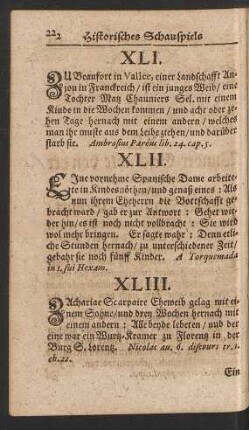 222 Historisches Schauspiels
XLI.
ZU Beaufort in Vallee, einer Landschafft An-
jou in Franckreich / ist ein junges Weib / eine
Tochter Matz Chaumiers Sel. mit einem
Kinde in die Wochen kommen / und acht oder ze-
hen Tage hernach mit einem andern / welches
man ihr muste aus dem Leibe ziehen / und darüber
starb sie. Ambrosius Paræus lib. 24. cap. 5.
XLII.
EIne vornehme Spanische Dame arbeite-
te in Kindesnöthen / und genaß eines: Als
nun ihrem Eheherrn die Bottschafft ge-
bracht ward / gab er zur Antwort: Gehet wie-
der hin / es ist noch nicht vollbracht: Sie wird
wol mehr bringen. Er sagte wahr: Denn etli-
che Stunden hernach / zu unterschiedener Zeit /
gebahr sie noch fünff Kinder. A Torquemada
in 1. sui Hexam.
XLIII.
ZAchariae Scarpaire Eheweib gelag mit ei-
nem Sohne / und drey Wochen hernach mit
einem andern: Alle beyde lebeten / und der
eine war ein Wurtz-Kramer zu Florentz in der
Burg S. Lorentz. Nicolas au. 6. discours tr. 1.
ch. 22.
Ein